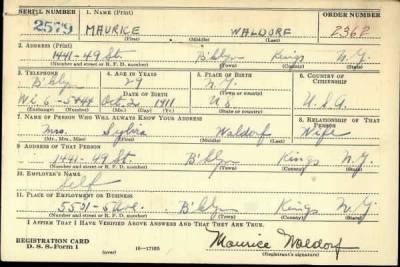 SERIAL NUMBER 1. NAME (Print) ORDER NUMBER
2579 MAURICE WALDORF 2362
(First) (Middle) (Last)
2. ADDRESS (Print)
1441-49 St. B'klyn Kings N.Y.
(Number and street or R. F. D. number) (Town) (County) (State)
3. TELEPHONE 4. AGE IN YEARS 5. PLACE OF BIRTH 6. COUNTRY OF CITIZENSHIP
B'klyn 29 N.Y.
DATE OF BIRTH (Town or county)
Wi 6-5444 Oct. 1911 U.S. U.S.A.
(Exchange) (No.) (Mo.) (Day) (Yr.) (State or country)
7. NAME OF PERSON WHO WILL ALWAYS KNOW YOUR ADDRESS 8. RELATIONSHIP OF THAT PERSON
Mrs. Sylvia Waldorf Wife
(Mr., Mrs., Miss) (First) (Middle) (Last)
9. ADDRESS OF THAT PERSON
1441-49 St. B'klyn Kings N.Y.
(Number and street or R. F. D. number) (Town) (County) (State)
10. EMPLOYER'S NAME
Self
11. PLACE OF EMPLOYMENT OR BUSINESS
5501- Ave. B'klyn Kings N.Y.
(Number and street or R. F. D. number) (Town) (County) (State)
I AFFIRM THAT I HAVE VERIFIED ABOVE ANSWERS AND THAT THEY ARE TRUE.
REGISTRATION CARD
D. S. S. Form 1 (over) 16-17105 Maurice Waldorf
(Registrant's signature)